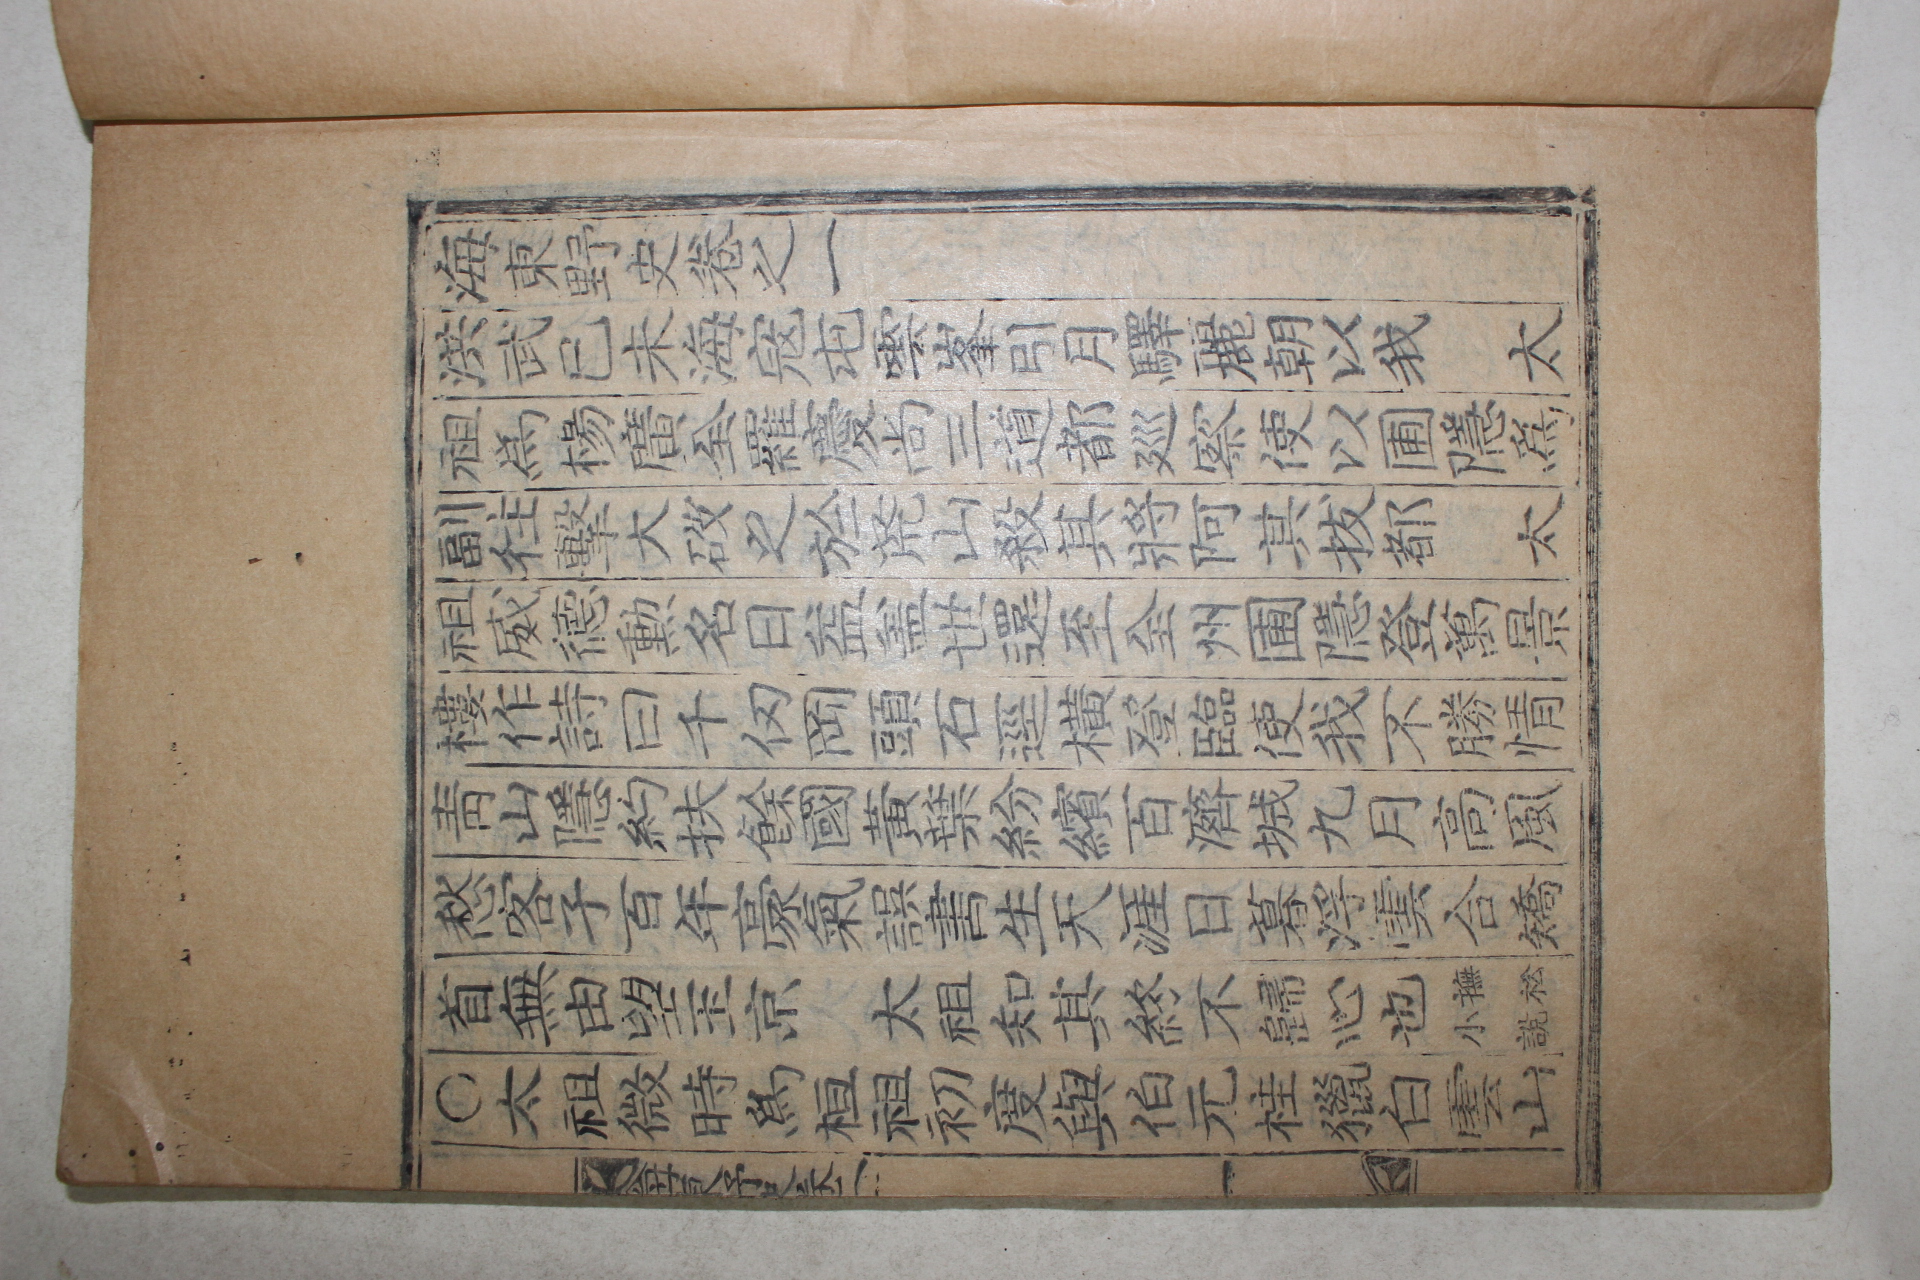 海東野史卷之一
洪武已未海寇屯雲峯引月驛麗朝以我　太
祖爲楊廣全羅慶尚三道都廵察使以圃隱爲
副往擊大破之於荒山殺其將阿其拔都　太
祖威德勳名日益盖世還至全州圃隱登萬景
樓作詩曰千仞岡頭石逕橫登臨使我不勝情
靑山隱約扶餘國黃葉紛繽百濟城九月高風
愁客子百年豪氣誤書生天涯日暮浮雲合矯
首無由望玉京　太祖知其終不歸心也撫松
小說
○太祖微時爲桓祖初度與伯元桂獵白雲山
海東野史卷之一
一